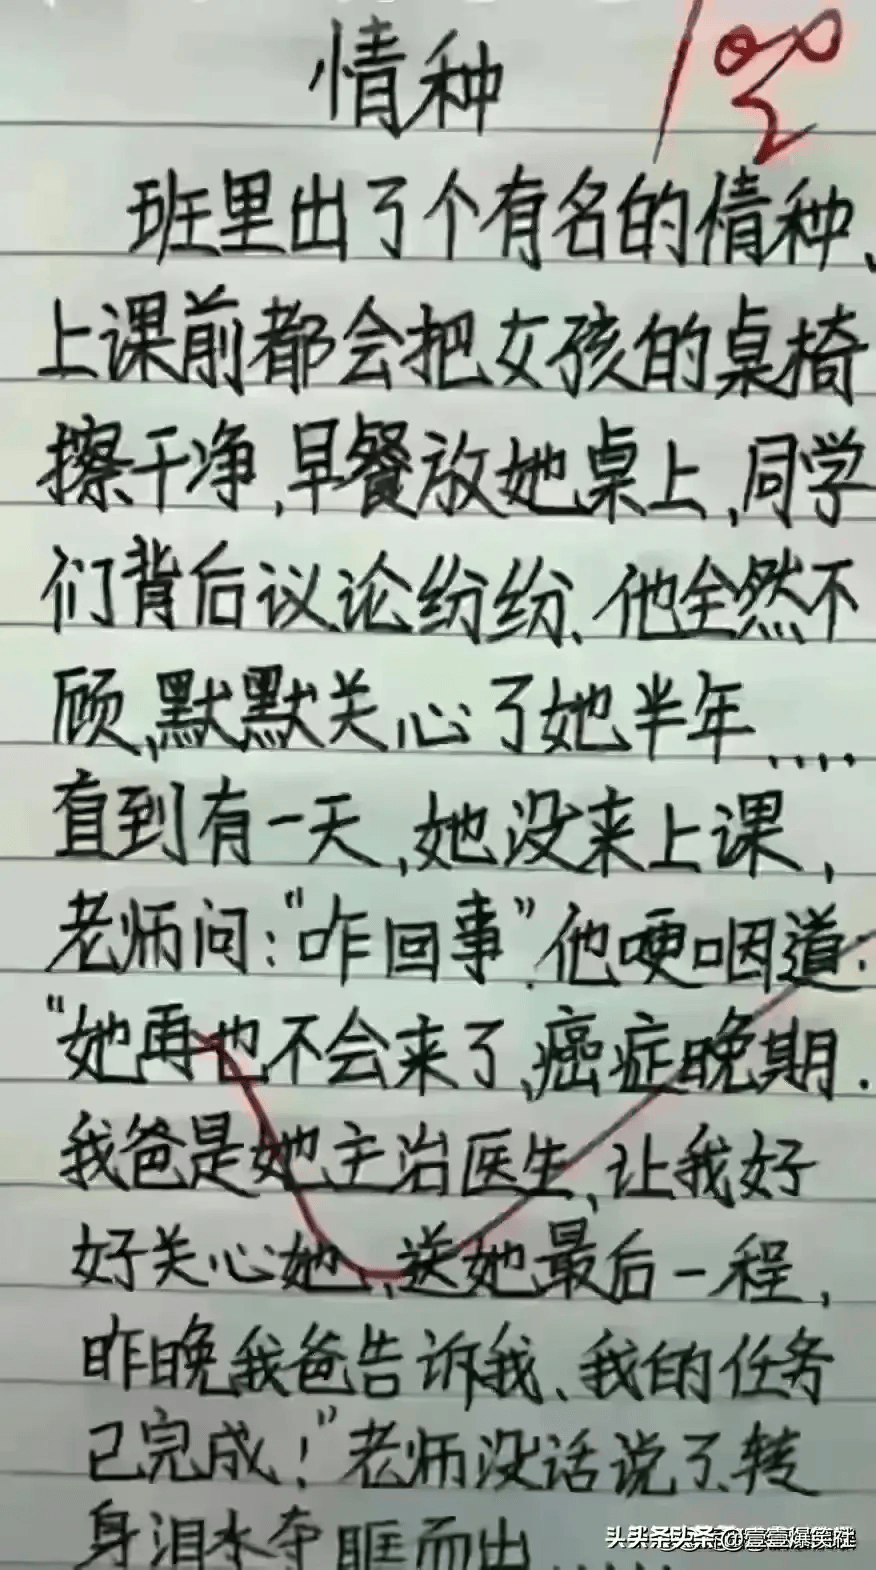 情种
100
班里出了个有名的情种、
上课前都会把女孩的桌椅
擦干净,早餐放她桌上,同学
们背后议论纷纷、他全然不
顾,默默关心了她半年....
直到有一天,她没来上课,
老师问:“咋回事”.他哽咽道:
“她再也不会来了,癌症晚期.
我爸是她主治医生,让我好
好关心她、送她最后一程,
昨晚我爸告诉我、我的任务
已完成!”老师没话说了、转
身泪水夺眶而出......
头条 @壹壹爆笑娃